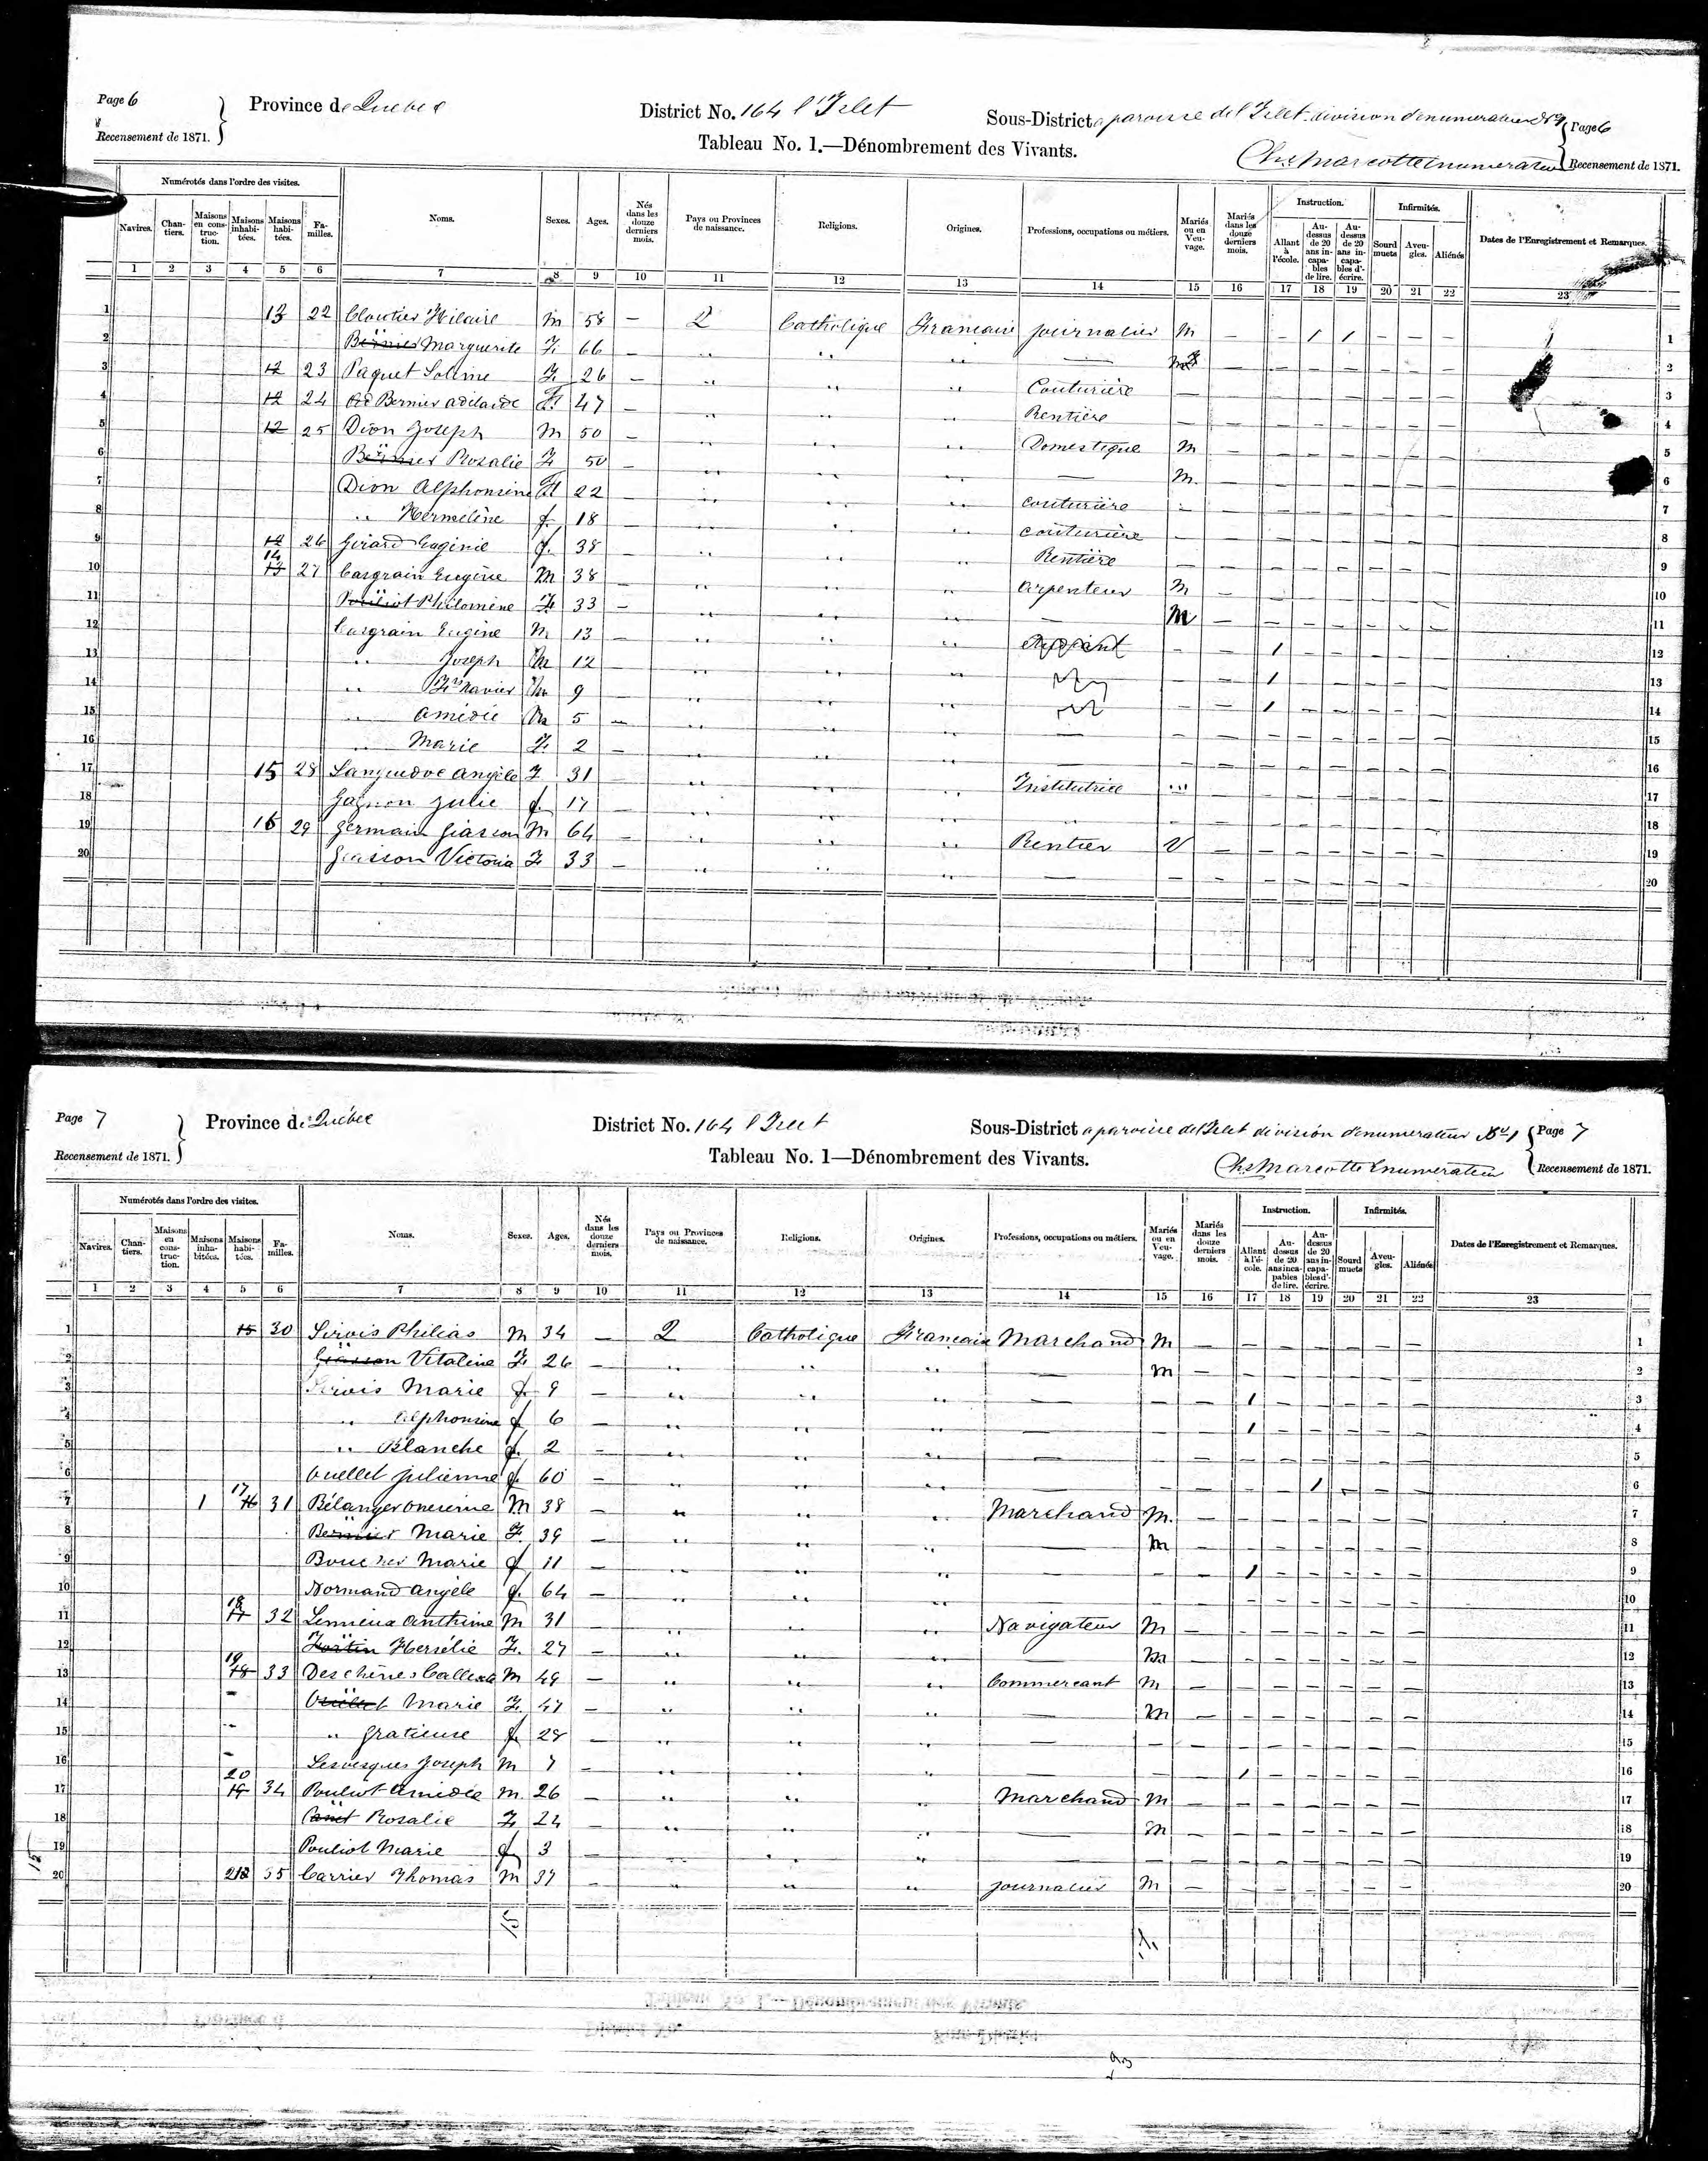 Page 6
Recensement de 1871.
Province de Quebec
District No. 164 l'Islet
Sous-District a paroisse de l'Islet division d'enumerateur No 1
Page 6
Recensement de 1871.
Tableau No. 1.—Dénombrement des Vivants.
Chs Marcotte Enumerateur
Numérotés dans l'ordre des visites.
Navires. Chantiers. Maisons en construction. Maisons inhabitées. Maisons habitées. Familles. Noms. Sexes. Ages. Nés dans les douze derniers mois. Pays ou Provinces de naissance. Religions. Origines. Professions, occupations ou métiers. Mariés ou en Veuvage. Mariés dans les douze derniers mois. Instruction. Allant à l'école. Au-dessus de 20 ans incapables de lire. Au-dessus de 20 ans incapables d'écrire. Infirmités. Sourd muets Aveugles. Aliénés Dates de l'Enregistrement et Remarques.
1 2 3 4 5 6 7 8 9 10 11 12 13 14 15 16 17 18 19 20 21 22 23
1 13 22 Cloutier Hilaire M 58 – Q Catholique Francaise journalier M – – 1 1 – – – 1
2 Bernier Marguerite F 66 – " " " — M – – – – – – – 2
3 12 23 Paquet Soline F 26 – " " " Couturière – – – – – – – 3
4 12 24 Bernier adelaide F 47 – " " " Rentière – – – – – – – 4
5 12 25 Dion Joseph M 50 – " " " Domestique M – – – – – – – 5
6 Bernier Rosalie F 50 – " " " — M. – – – – – – – 6
7 Dion Alphonsine F 22 – " " " couturière – – – – – – – 7
8 " Hermeline f 18 – " " " couturière – – – – – – – 8
9 12 26 Girard Eugénie f. 38 – " " " Rentière – – – – – – – 9
10 14 13 27 Casgrain Eugène M 38 – " " " arpenteur M – – – – – – – 10
11 Pouliot Philomène F 33 – " " " — M – – – – – – – 11
12 Casgrain Eugène M 13 – " " " – – 1 – – – – – 12
13 " Joseph M 12 – " " " – – 1 – – – – – 13
14 " Frs Xavier M 9 – " " " – – 1 – – – – – 14
15 " Amédée M 5 – " " " — – – – – – – – 15
16 " Marie F. 2 – " " " — – – – – – – – 16
17 15 28 Languedoc Angèle F 31 – " " " Institutrice – – – – – – – 17
18 Gagnon Julie f 17 – " " " – – – – – – – 18
19 16 29 Germain Giasson M 64 – " " " Rentier V – – – – – – – 19
20 Giasson Victoria F 33 – " " " — – – – – – – – 20
Page 7
Recensement de 1871.
Province de Québec
District No. 164 l'Islet
Sous-District a paroisse de l'Islet division d'enumerateur No 1
Page 7
Recensement de 1871.
Tableau No. 1—Dénombrement des Vivants.
Chs Marcotte Enumerateur
Numérotés dans l'ordre des visites.
Navires. Chantiers. Maisons en construction. Maisons inhabitées. Maisons habitées. Familles. Noms. Sexes. Ages. Nés dans les douze derniers mois. Pays ou Provinces de naissance. Religions. Origines. Professions, occupations ou métiers. Mariés ou en Veuvage. Mariés dans les douze derniers mois. Instruction. Allant à l'école. Au-dessus de 20 ans incapables de lire. Au-dessus de 20 ans incapables d'écrire. Infirmités. Sourd muets Aveugles. Aliénés Dates de l'Enregistrement et Remarques.
1 2 3 4 5 6 7 8 9 10 11 12 13 14 15 16 17 18 19 20 21 22 23
1 15 30 Sirois Philias M 34 – Q Catholique Francaise Marchand M – – – – – – – 1
2 Giasson Vitaline F 26 – " " " — M – – – – – – – 2
3 Sirois Marie f 9 – " " " — – 1 – – – – – 3
4 " Alphonsine f 6 – " " " — – 1 – – – – – 4
5 " Blanche f. 2 – " " " — – – – – – – – 5
6 Ouellet Julienne f. 60 – " " " — – – – 1 – – – 6
7 1 17 16 31 Bélanger Onesime M 38 – " " " Marchand M. – – – – – – – 7
8 Bernier Marie F. 39 – " " " — M – – – – – – – 8
9 Boucher Marie f 11 – " " " — – 1 – – – – – 9
10 Normand Angèle f. 64 – " " " — – – – – – – – 10
11 18 17 32 Lemieux Anthime M 31 – " " " Navigateur M – – – – – – – 11
12 Fortin Hersélie F. 27 – " " " — M – – – – – – – 12
13 19 18 33 Deschênes Callexte M 49 – " " " Commercant M – – – – – – – 13
14 Ouellet Marie F. 47 – " " " — M – – – – – – – 14
15 " Gratieuse f 28 – " " " — – – – – – – – 15
16 Lesvesques Joseph M 7 – " " " — – 1 – – – – – 16
17 20 19 34 Pouliot Amédée M. 26 – " " " Marchand M – – – – – – – 17
18 Rosalie F 24 – " " " — M – – – – – – – 18
19 Pouliot Marie f 3 – " " " — – – – – – – – 19
20 21 35 Carrier Thomas M 37 – " " " journalier M – – – – – – – 20